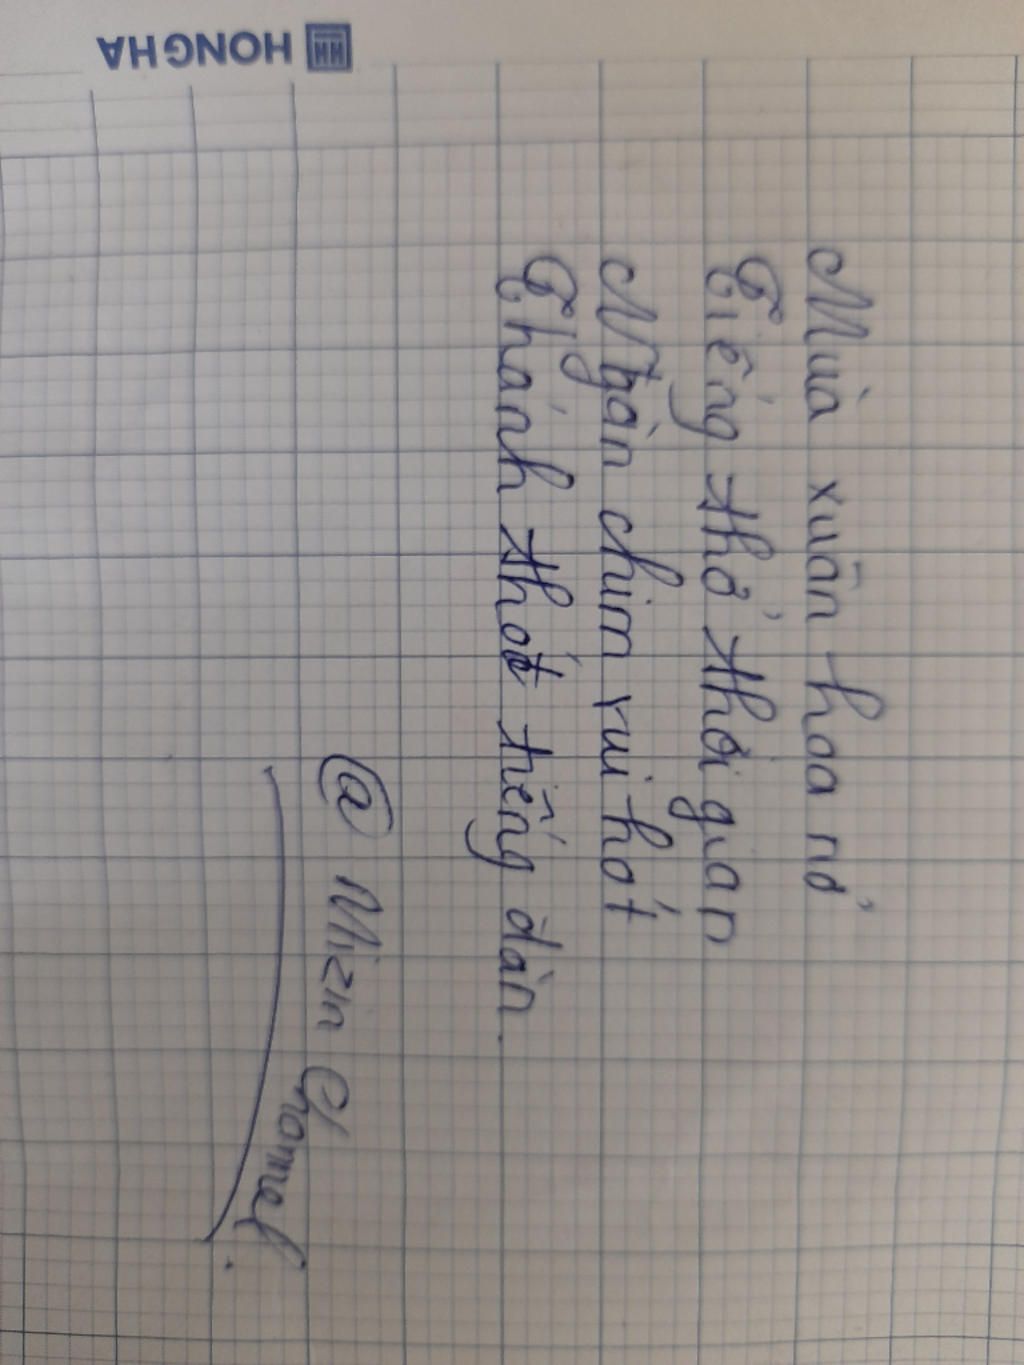 HONG HA
Mùa xuân hoa nở
Tiếng thở thời gian
Ngàn chim vui hót
Thánh thót tiếng đàn.
@ Mizin Channel.